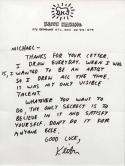 KEITH HARING
MICHAEL -
THANKS FOR YOUR LETTER.
I DRAW EVERYDAY. WHEN I WAS
10, I WANTED TO BE AN ARTIST
SO I DREW ALL THE TIME.
IT WAS MY ONLY VISIBLE
TALENT.
WHATEVER YOU WANT TO
DO, THE ONLY SECRET IS TO
BELIEVE IN IT AND SATISFY
YOURSELF. DON'T DO IT FOR
ANYONE ELSE.
GOOD LUCK,
Keith